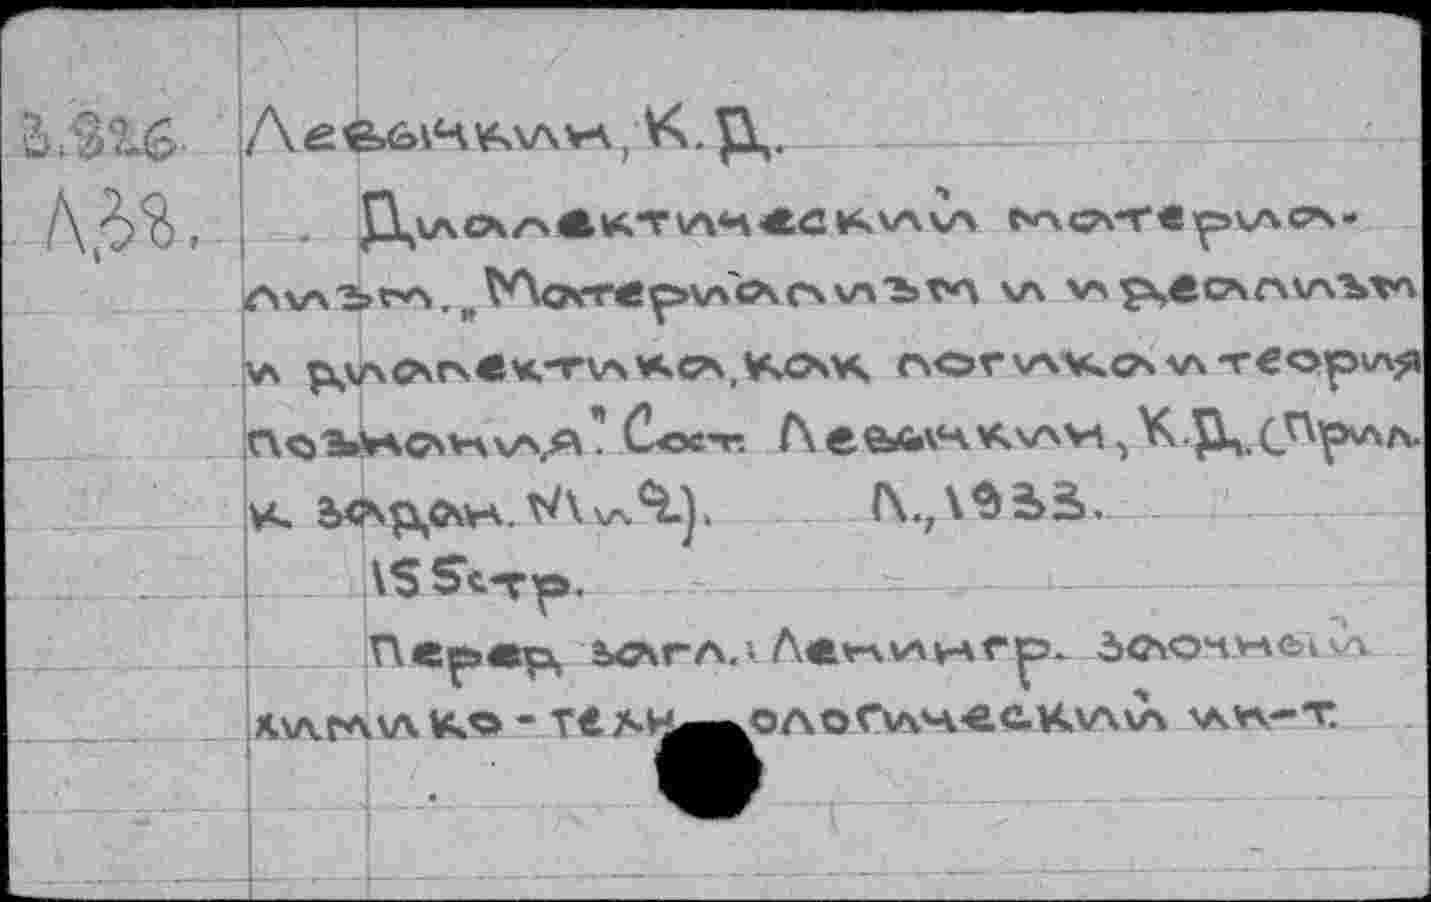 3.326 Левычкин, К.Д.
Л38. Диалектический материа-
лизм. „Материализм и идеализм
и диалектика, как логика и теория
познания". Сост. Левычкин, К.Д. (Прил.
к задан. №2). Л., 1933.
155 стр.
Перед загл.: Ленингр. заочный
химико-техн ологический ин-т.